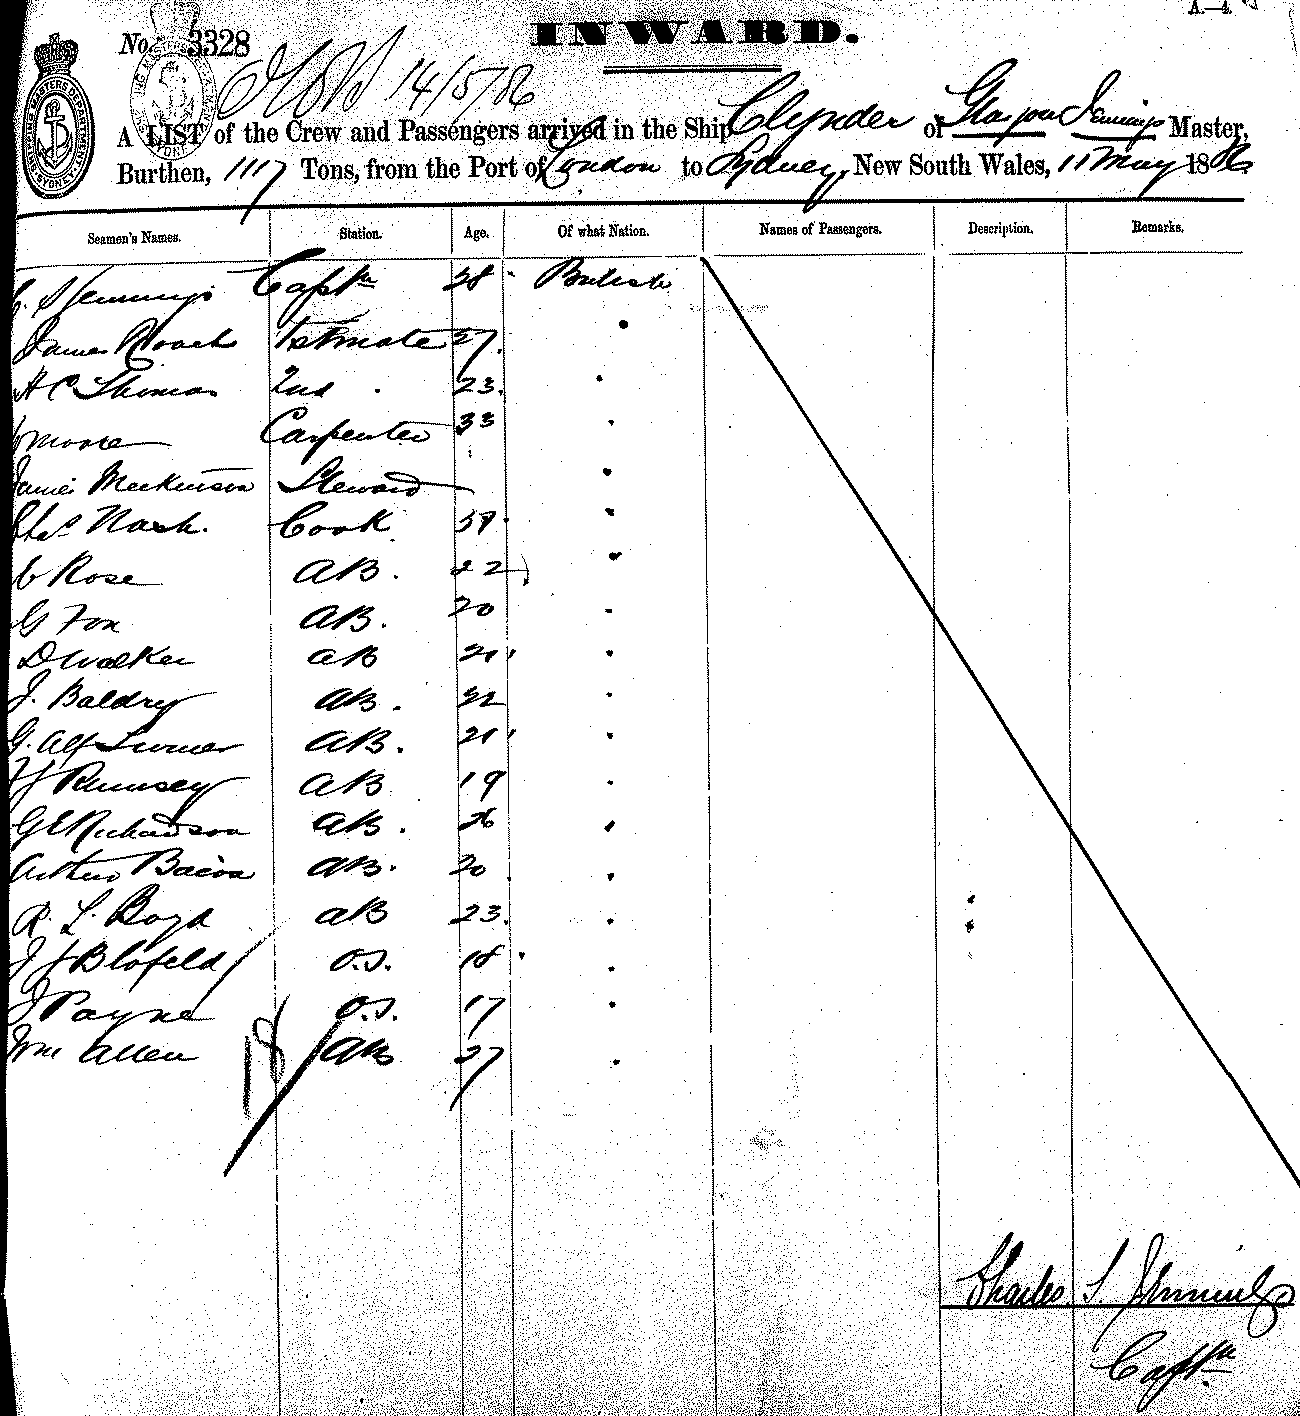 INWARD.
No. 3328
14/5/86
A LIST of the Crew and Passengers arrived in the Ship Clynder of Glasgow Jennings Master,
Burthen, 1117 Tons, from the Port of London to Sydney, New South Wales, 11 May 1886
Seamen's Names. Station. Age. Of what Nation. Names of Passengers. Description. Remarks.
C. S Jennings Captn 28 British
James Roach 1st mate 37.
H C Thomas 2nd 23.
Moore Carpenter 33
James Steward
Chas Nash. Cook
C Rose AB. 22
G Fox AB. 20
D Walker AB 21
J. Baldry AB. 22
G. Alf Turner AB. 21
Rumsey AB 19
G E Richardson AB. 26
Arthur Bacon AB. 20
R. L. Boyd AB 23.
J J Blofeld O.S. 18
J Payne O.S. 17
Wm Allen AB 27
18
Charles S. Jennings
Captn